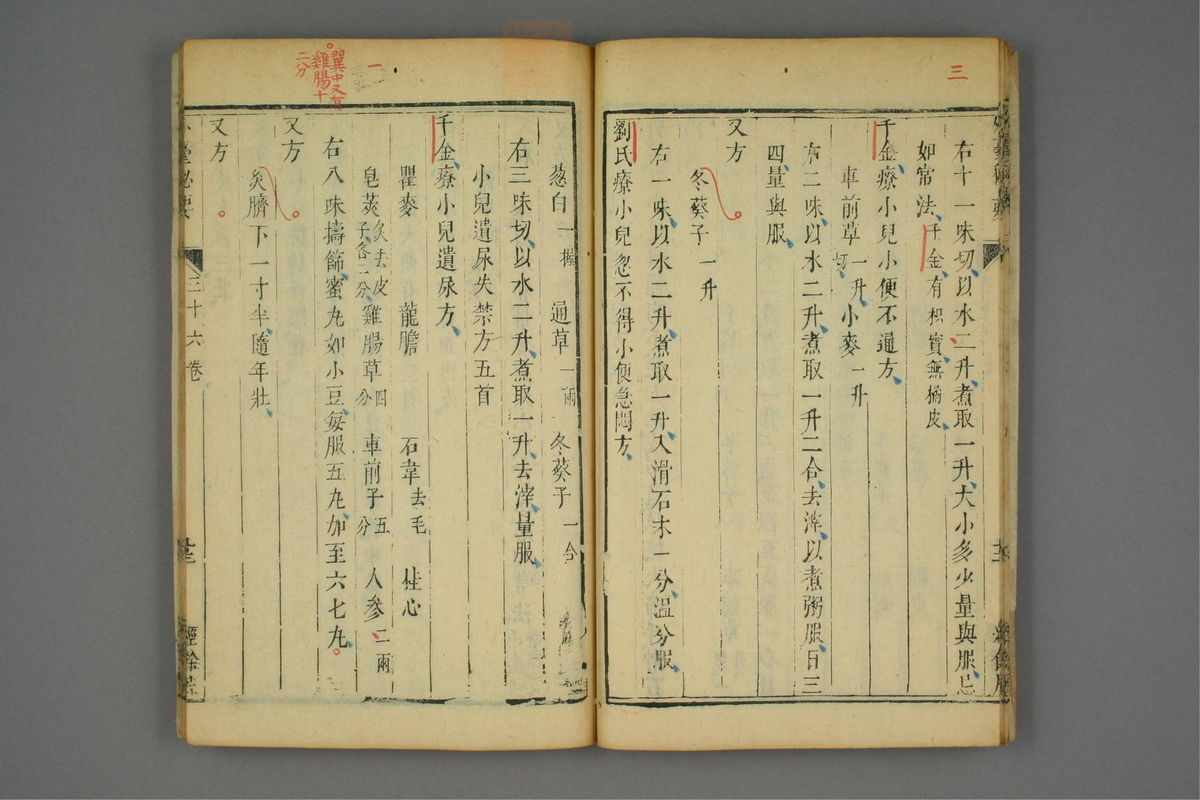 三
右十一味切以水二升煮取一升大小多少量與服忌
如常法千金有枳實無橘皮
千金療小兒小便不通方
車前草一升切小麥一升
右二味以水二升煮取一升二合去滓以煮粥服日三
四量與服
又方
冬葵子一升
右一味以水二升煮取一升入滑石末一分溫分服
劉氏療小兒忽不得小便急悶方
葱白一握 通草一兩 冬葵子一合
右三味切以水二升煮取一升去滓量服
小兒遺尿失禁方五首
千金療小兒遺尿方
瞿麥 龍膽 石韋去毛 桂心
皂莢炙去皮子各二分 雞腸草四分 車前子五分 人參二兩
右八味擣篩蜜丸如小豆每服五丸加至六七丸
又方
灸臍下一寸半隨年壯
又方
臺秘要 三十六卷
一
翼中又有
雞腸十
二分